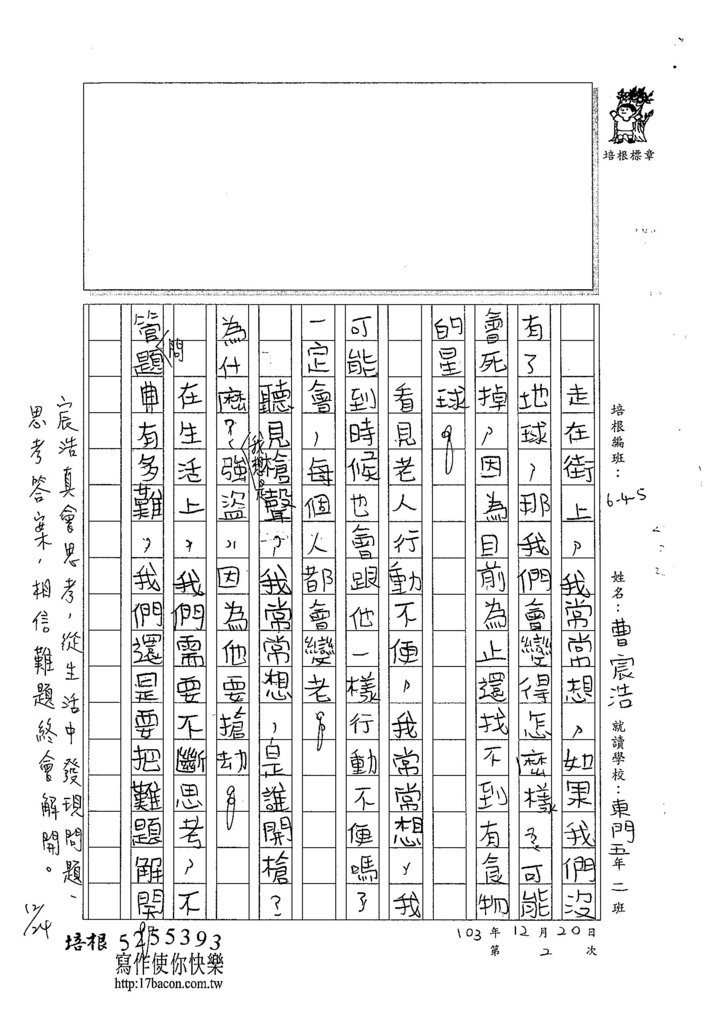 培根標章
培根編班：6-45
姓名：曹宸浩
就讀學校：東門五年二班
103年12月20日
第2次
走在街上，我常常想，如果我們沒
有了地球，那我們會變得怎麼樣？可能
會死掉，因為目前為止還找不到有食物
的星球。
看見老人行動不便，我常常想，我
可能到時候也會跟他一樣行動不便嗎？
一定會，每個人都會變老。
聽見槍聲，我常常想，是誰開槍？
為什麼？我想是強盜，因為他要搶劫。
在生活上，我們需要不斷思考，不
管問題有多難，我們還是要把難題解開。
宸浩真會思考，從生活中發現問題、
思考答案，相信難題終會解開。
12/24
培根 5255393
寫作使你快樂
http:17bacon.com.tw